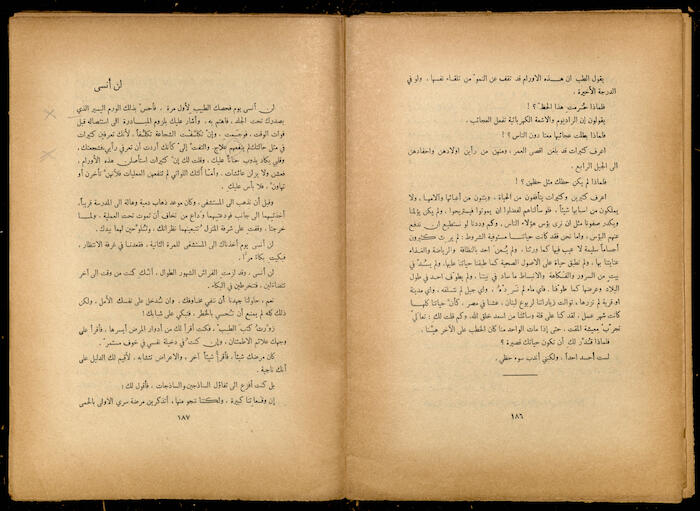 يقول الطب ان هذه الاورام قد تقف عن النمو من تلقاء نفسها ، ولو في
الدرجة الأخيرة .
فلماذا حُرمت هذا الحظ ؟ !
يقولون إن الراديوم والاشعة الكهربائية تفعل العجائب .
فلماذا بطلت عجائبها معنا دون الناس ؟ !
اعرف كثيرات قد بلغن اقصى العمر ، ومنهن من رأين اولادهن واحفادهن
الى الجيل الرابع .
فلماذا لم يكن حظك مثل حظهن ؟ !
اعرف كثيرين وكثيرات يتأففون من الحياة ، ويئنون من أعبائها وآلامها ، ولا
يملكون من اسبابها شيئاً ، فلو سألتهم لفضلوا ان يموتوا فيستريحوا ، ولم يكن يؤلمنا
ويكدر صفونا مثل ان نرى بؤس هؤلاء الناس ، وكم وددنا لو نستطيع ان ندفع
عنهم البؤس ، واما نحن فقد كانت حياتنا مستوفية الشروط : لم يرث كثيرون
أجساماً سليمة لا عيب فيها كما ورثنا ، ولم يُعن احد بالنظافة والرياضة والغذاء
عنايتنا بها ، ولم نطبق حياة على الاصول الصحية كما طبقنا حياتنا عليها ، ولم يَسُد في
بيت من السرور والفكاهة والانبساط ما ساد في بيتنا ، ولم يطوف احد في طول
البلاد وعرضها كما طوفنا . فأي ماء لم نَرِدْهُ ، واي جبل لم نتسلقه ، واي مدينة
او قرية لم نزرها ، توالت زياراتنا لربوع لبنان ، عشنا في مصر ، كأن حياتنا كلها
كانت شهر عسل ، لقد كنا على قلة وسائلنا من اسعد خلق الله ، وكم قلت لك : تعالي
نجرّب معيشة المقت ، حتى إذا مات الواحد منا كان الخطب على الآخر هيناً .
فلماذا قُدّر لك أن تكون حياتك قصيرة ؟
لست أحسد احداً ، ولكني أندب سوء حظي .
١٨٦
لن أنسى
لن أنسى يوم فحصك الطبيب لأول مرة ، فأحس بذلك الورم اليسير الذي
بصدرك تحت الجلد ، فاهتم به ، وأشار عليك بلزوم المبادرة الى استئصاله قبل
فوات الوقت ، فوجمت ، وإن تكلفت الشجاعة تكلفاً ، لأنك تعرفين كثيرات
في مثل حالتك لم ينفعهن علاج . والتفت إلي كأنك أردت أن تعرفي رأيي فشجعتك ،
وقلبي يكاد يذوب حناناً عليك ، وقلت لك إن كثيرات استأصلن هذه الأورام ،
فعشن ولا يزلن عائشات ، وأما أولئك اللواتي لم تنفعهن العمليات فلأنهن تأخرن أو
تهاون ، فلا بأس عليك .
وقبل أن نذهب الى المستشفى ، وكان موعد ذهاب دمية وهالة الى المدرسة قريباً ،
أخذتيهما الى جانب فودعتيهما وداع من تخاف أن تموت تحت العملية ، ولما
خرجتا ، وقفت على شرفة المنزل تتبعينهما نظراتك ، وتلوحين لهما بيدك .
لن أنسى يوم أخذناك الى المستشفى للمرة الثانية ، فقعدنا في غرفة الانتظار ،
فبكيت بكاء مراً .
لن أنسى ، وقد لازمت الفراش الشهور الطوال ، أنك كنت من وقت الى آخر
تتضاءلين ، فتنخرطين في البكاء .
نعم ، حاولنا جهدنا أن ننفي مخاوفك . وان نُدخل على نفسك الأمل ، ولكن
ذلك كله لم يمنع أن تحسي بالخطر ، فتبكي على شبابك !
زورت كتب الطبيب ، فكنت أقرأ لك من أدوار المرض أيسرها ، فأقرأ على
وجهك علائم الاطمئنان ، وإن كنت في دخيلة نفسي في خوف مستمر .
كان مرضك شيئاً ، فأقرأ شيئاً آخر ، والاعراض تتشابه ، لأقيم لك الدليل على
أنك ناجية .
بل كنت أفزع الى تفاؤل الساذجين والساذجات ، فأقول لك :
إن وقعاتنا كبيرة ، ولكننا ننجو منها ، أتذكرين مرضة سري الاولى بالحمى
١٨٧